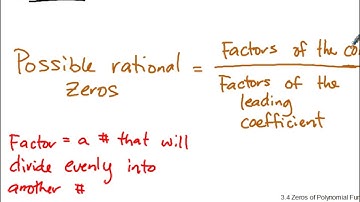 Possible rational zeros =
Factors of the co
Factors of the
leading
coefficient
Factor = a # that will
divide evenly into
another #
3.4 Zeros of Polynomial Fu